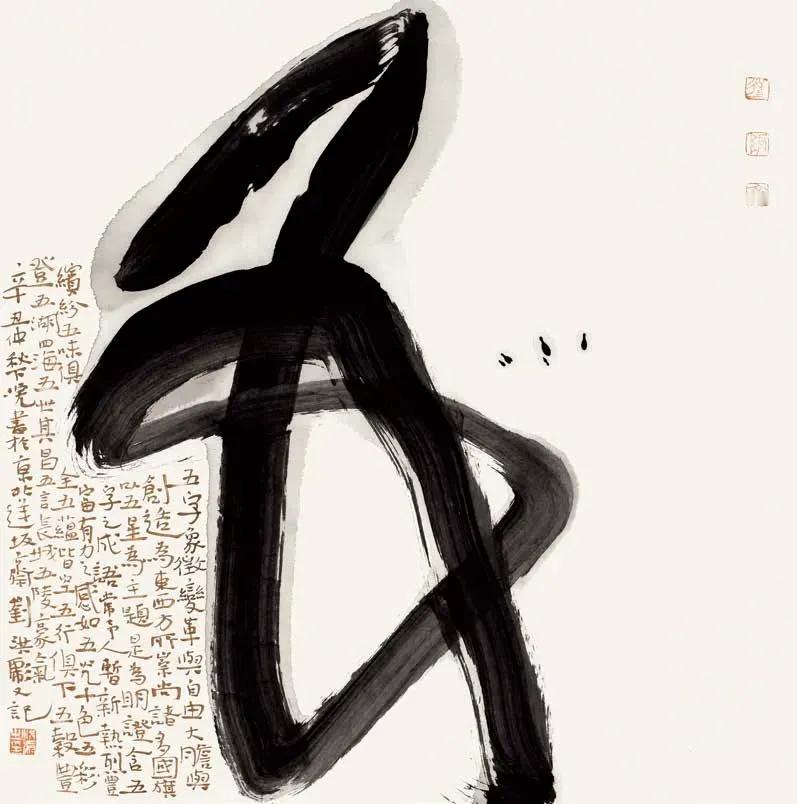 五字象徵變革與自由大膽與
創造為東西方所崇尚諸多國旗
以五星為主題是為明證含五
字之成語常予人暫新熱烈豐
富有力之感如五光十色五彩
繽紛五味俱全五蘊皆空五行俱下五穀豐
登五湖四海五世其昌五言長城五陵豪氣
辛丑仲秋下浣書於京北 坂齋劉洪彪又記